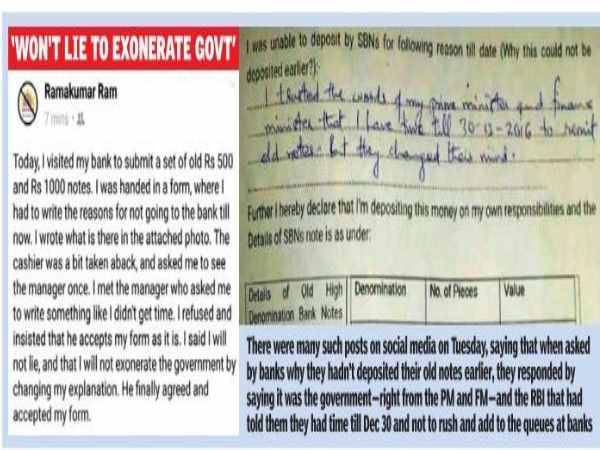 'WON'T LIE TO EXONERATE GOVT'
Ramakumar Ram
7 mins
Today, I visited my bank to submit a set of old Rs 500
and Rs 1000 notes. I was handed in a form, where I
had to write the reasons for not going to the bank till
now. I wrote what is there in the attached photo. The
cashier was a bit taken aback, and asked me to see
the manager once. I met the manager who asked me
to write something like I didn't get time. I refused and
insisted that he accepts my form as it is. I said I will
not lie, and that I will not exonerate the government by
changing my explanation. He finally agreed and
accepted my form.
I was unable to deposit by SBNs for following reason till date (Why this could not be
deposited earlier?):
I trusted the words of my prime minister and finance
minister that I have time till 30-12-2016 to remit
old notes. But they changed their mind.
Further I hereby declare that I'm depositing this money on my own responsibilities and the
Details of SBNs note is as under:
Details of Old High Denomination No. of Pieces Value
Denomination Bank Notes
There were many such posts on social media on Tuesday, saying that when asked
by banks why they hadn't deposited their old notes earlier, they responded by
saying it was the government–right from the PM and FM–and the RBI that had
told them they had time till Dec 30 and not to rush and add to the queues at banks